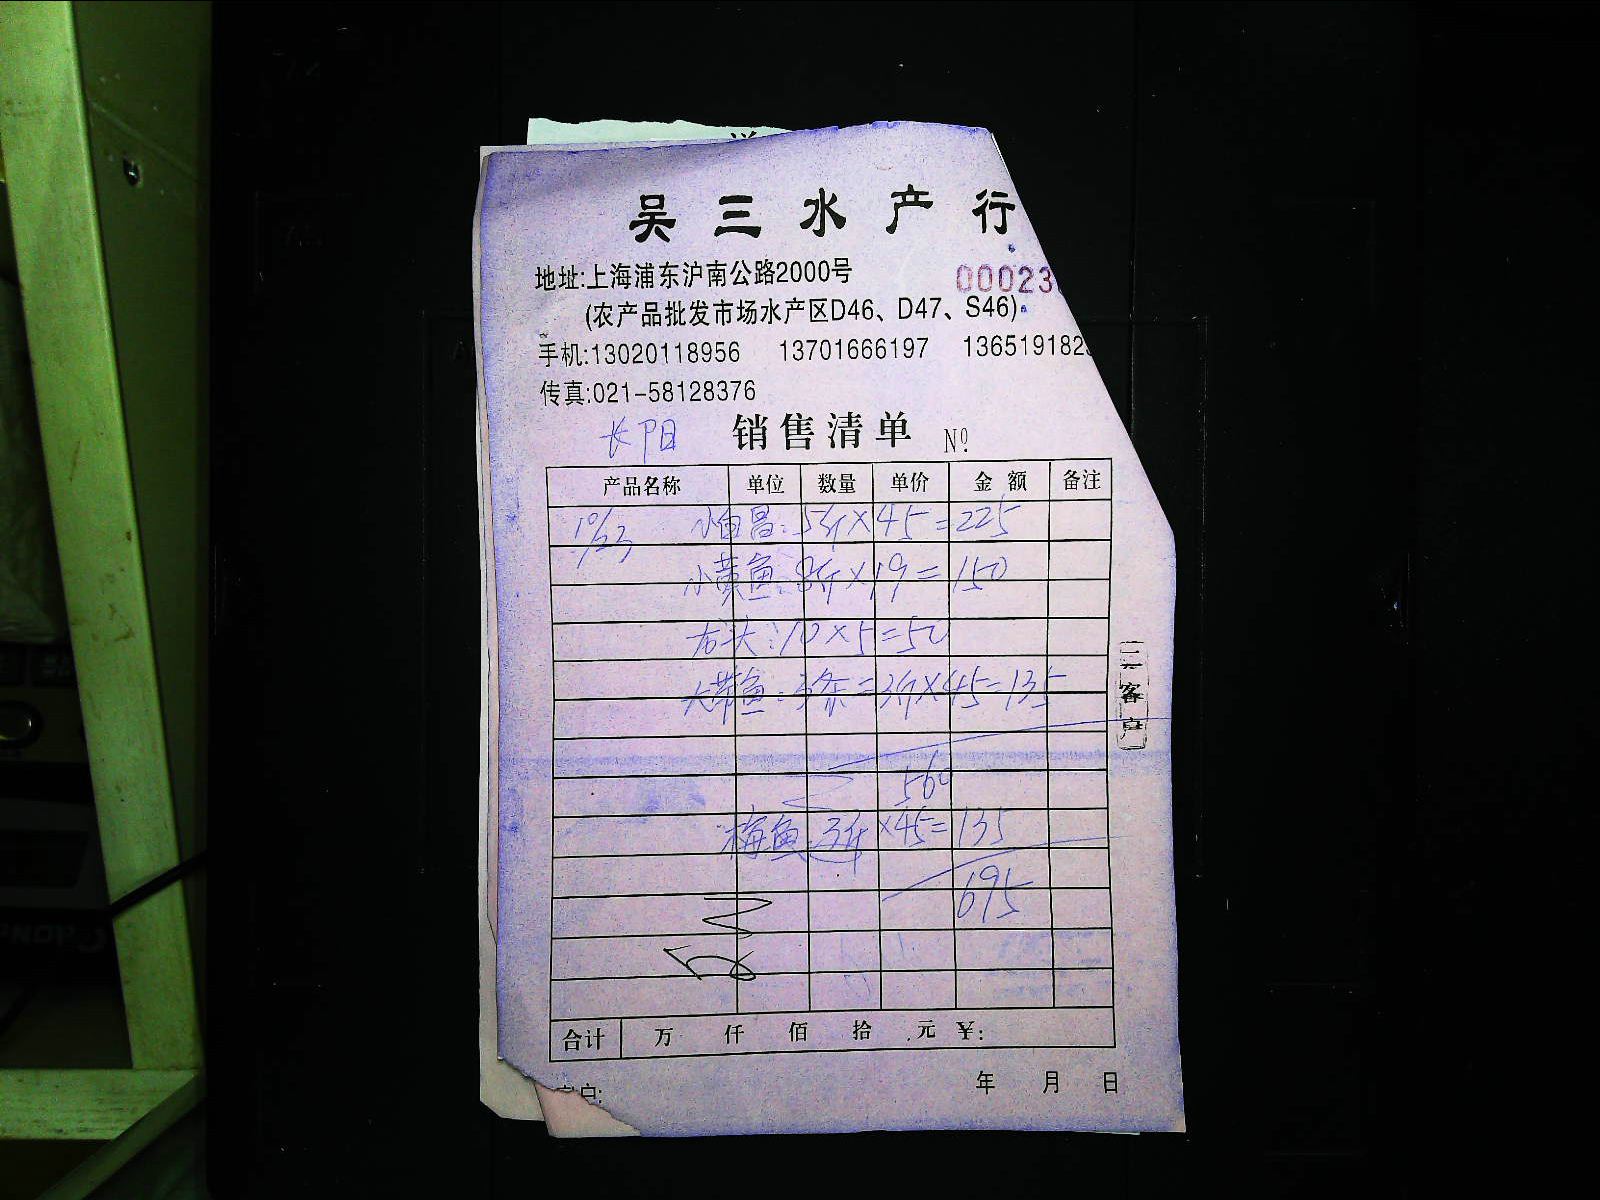 吴三水产行
00023
地址:上海浦东沪南公路2000号
(农产品批发市场水产区D46、D47、S46)
手机:13020118956 13701666197 136519182
传真:021-58128376
长阳 销售清单 Nº
产品名称 单位 数量 单价 金额 备注
10/23 小白昌:5斤×45=225
小黄鱼:8斤×19=150
右头:10×5=50
大带鱼:3条=3斤×45=135
560
梅鱼 3斤×45=135
695
二客户
合计 万 仟 佰 拾 元 ¥:
客户: 年 月 日